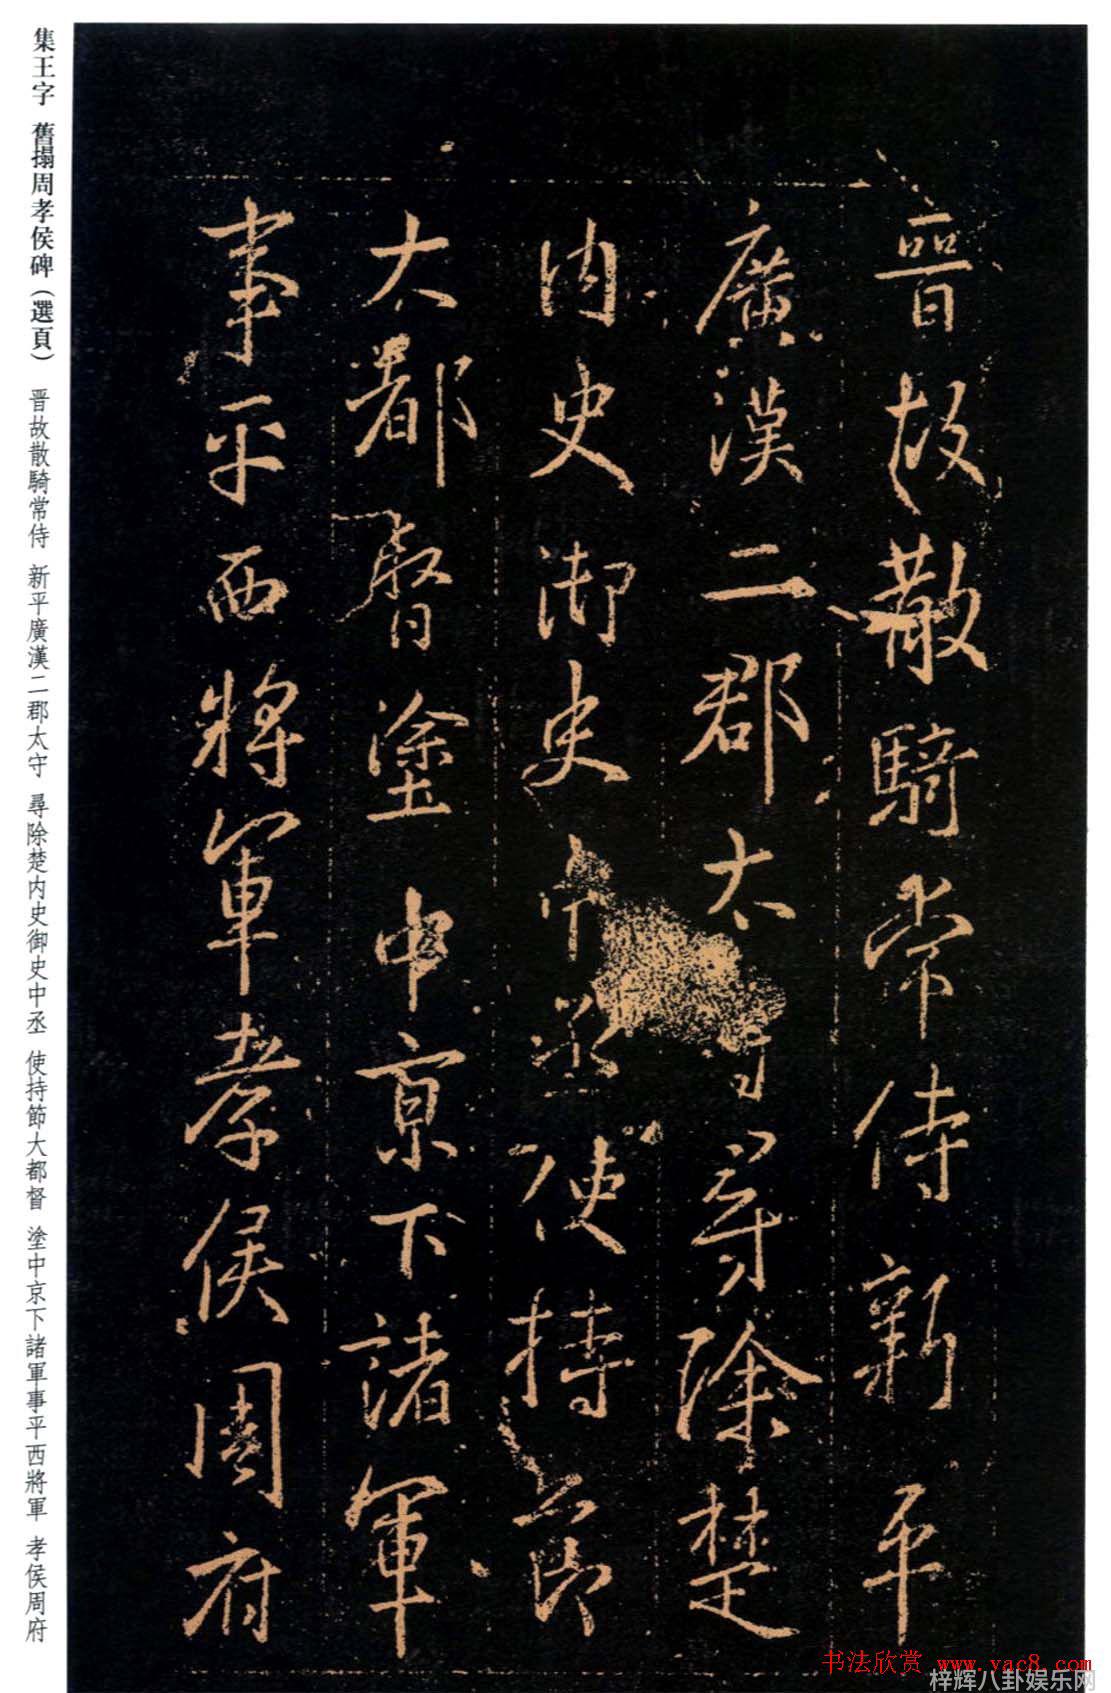 晉故散騎常侍新平
廣漢二郡太守尋除楚
内史御史中丞使持節
大都督塗中京下諸軍
事平西將軍孝侯周府
集王字 舊搨周孝侯碑(選頁) 晋故散騎常侍 新平廣漢二郡太守 尋除楚内史御史中丞 使持節大都督 塗中京下諸軍事平西將軍 孝侯周府
书法欣赏 www.yac8.com
梓辉八卦娱乐网